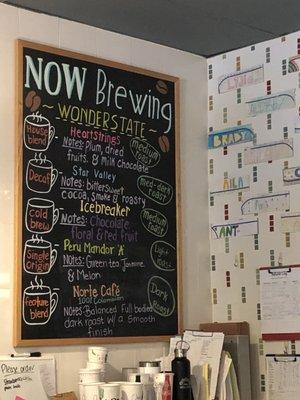 NOW Brewing
WONDERSTATE
House
blend
Heartstrings
Notes: Plum, dried
fruits, & milk chocolate
medium
Roast
Decaf
Star Valley
Notes: bittersweet
cocoa, smoke & roasty
med-dark
Roast
cold
brew
Icebreaker
Notes: Chocolate,
floral & red fruit
medium
Roast
Single
Origin
Peru Mandor A
Notes: Green tea, Jasmine
& Melon
Light
Roast
feature
blend
Norte Café
100% Colombian
Notes: Balanced full bodied
dark roast w/ a Smooth
finish
Dark
Roast
BRADY
Please